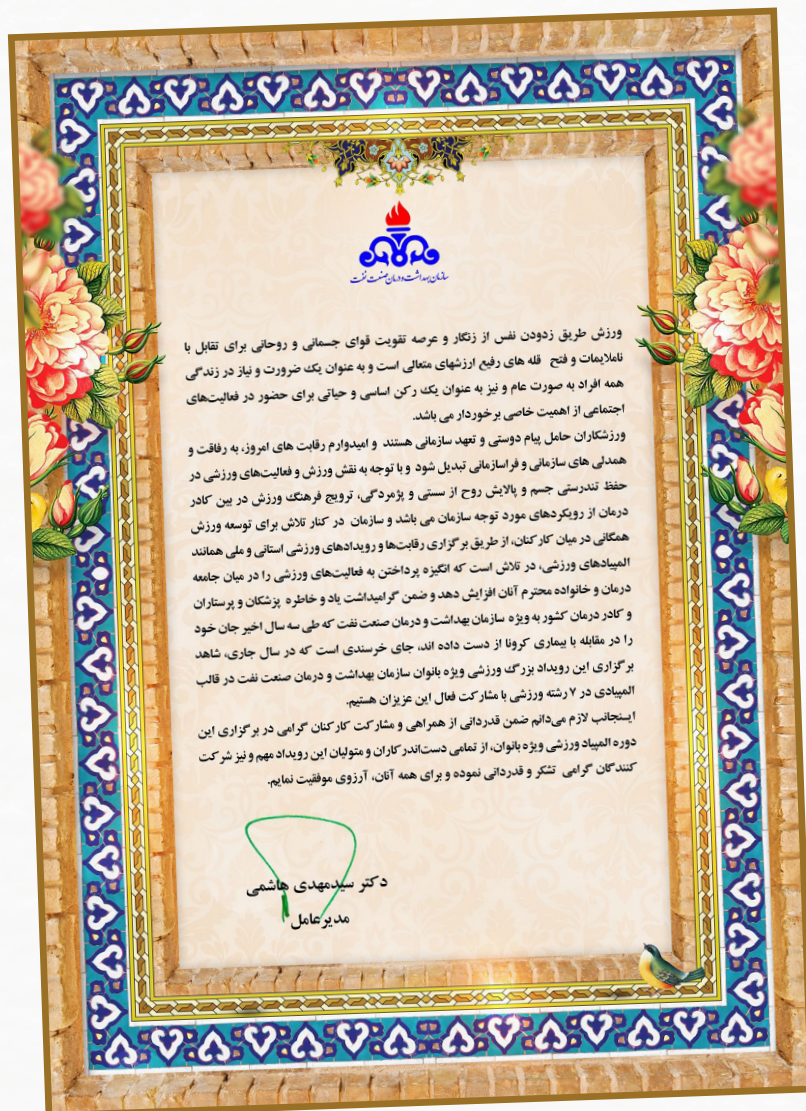 سازمان بهداشت و درمان صنعت نفت
ورزش طریق زدودن نفس از زنگار و عرصه تقویت قوای جسمانی و روحانی برای تقابل با
ناملایمات و فتح قله های رفیع ارزشهای متعالی است و به عنوان یک ضرورت و نیاز در زندگی
همه افراد به صورت عام و نیز به عنوان یک رکن اساسی و حیاتی برای حضور در فعالیت‌های
اجتماعی از اهمیت خاصی برخوردار می باشد.
ورزشکاران حامل پیام دوستی و تعهد سازمانی هستند و امیدوارم رقابت های امروز، به رفاقت و
همدلی های سازمانی و فراسازمانی تبدیل شود و با توجه به نقش ورزش و فعالیت‌های ورزشی در
حفظ تندرستی جسم و پالایش روح از سستی و پژمردگی، ترویج فرهنگ ورزش در بین کادر
درمان از رویکردهای مورد توجه سازمان می باشد و سازمان در کنار تلاش برای توسعه ورزش
همگانی در میان کارکنان، از طریق برگزاری رقابت‌ها و رویدادهای ورزشی استانی و ملی همانند
المپیادهای ورزشی، در تلاش است که انگیزه پرداختن به فعالیت‌های ورزشی را در میان جامعه
درمان و خانواده محترم آنان افزایش دهد و ضمن گرامیداشت یاد و خاطره پزشکان و پرستاران
و کادر درمان کشور به ویژه سازمان بهداشت و درمان صنعت نفت که طی سه سال اخیر جان خود
را در مقابله با بیماری کرونا از دست داده اند، جای خرسندی است که در سال جاری، شاهد
برگزاری این رویداد بزرگ ورزشی ویژه بانوان سازمان بهداشت و درمان صنعت نفت در قالب
المپیادی در ۷ رشته ورزشی با مشارکت فعال این عزیزان هستیم.
اینجانب لازم می‌دانم ضمن قدردانی از همراهی و مشارکت کارکنان گرامی در برگزاری این
دوره المپیاد ورزشی ویژه بانوان، از تمامی دست‌اندرکاران و متولیان این رویداد مهم و نیز شرکت
کنندگان گرامی تشکر و قدردانی نموده و برای همه آنان، آرزوی موفقیت نمایم.
دکتر سیدمهدی هاشمی
مدیرعامل